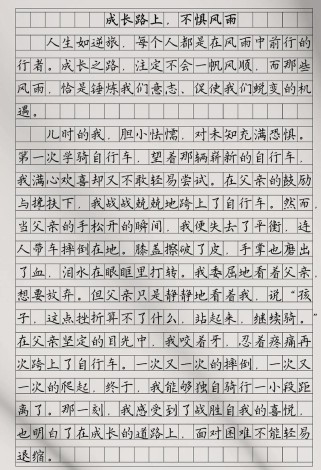 成长路上，不惧风雨
人生如逆旅，每个人都是在风雨中前行的
行者。成长之路，注定不会一帆风顺，而那些
风雨，恰是锤炼我们意志，促使我们蜕变的机
遇。
儿时的我，胆小怯懦，对未知充满恐惧。
第一次学骑自行车，望着那辆崭新的自行车，
我满心欢喜却又不敢轻易尝试。在父亲的鼓励
与搀扶下，我战战兢兢地跨上了自行车。然而，
当父亲的手松开的瞬间，我便失去了平衡，连
人带车摔倒在地。膝盖擦破了皮，手掌也磨出
了血，泪水在眼眶里打转。我委屈地看着父亲，
想要放弃。但父亲只是静静地看着我，说“孩
子，这点挫折算不了什么，站起来，继续骑。”
在父亲坚定的目光中，我咬着牙，忍着疼痛再
次跨上了自行车。一次又一次的摔倒，一次又
一次的爬起，终于，我能够独自骑行一小段距
离了。那一刻，我感受到了战胜自我的喜悦，
也明白了在成长的道路上，面对困难不能轻易
退缩。